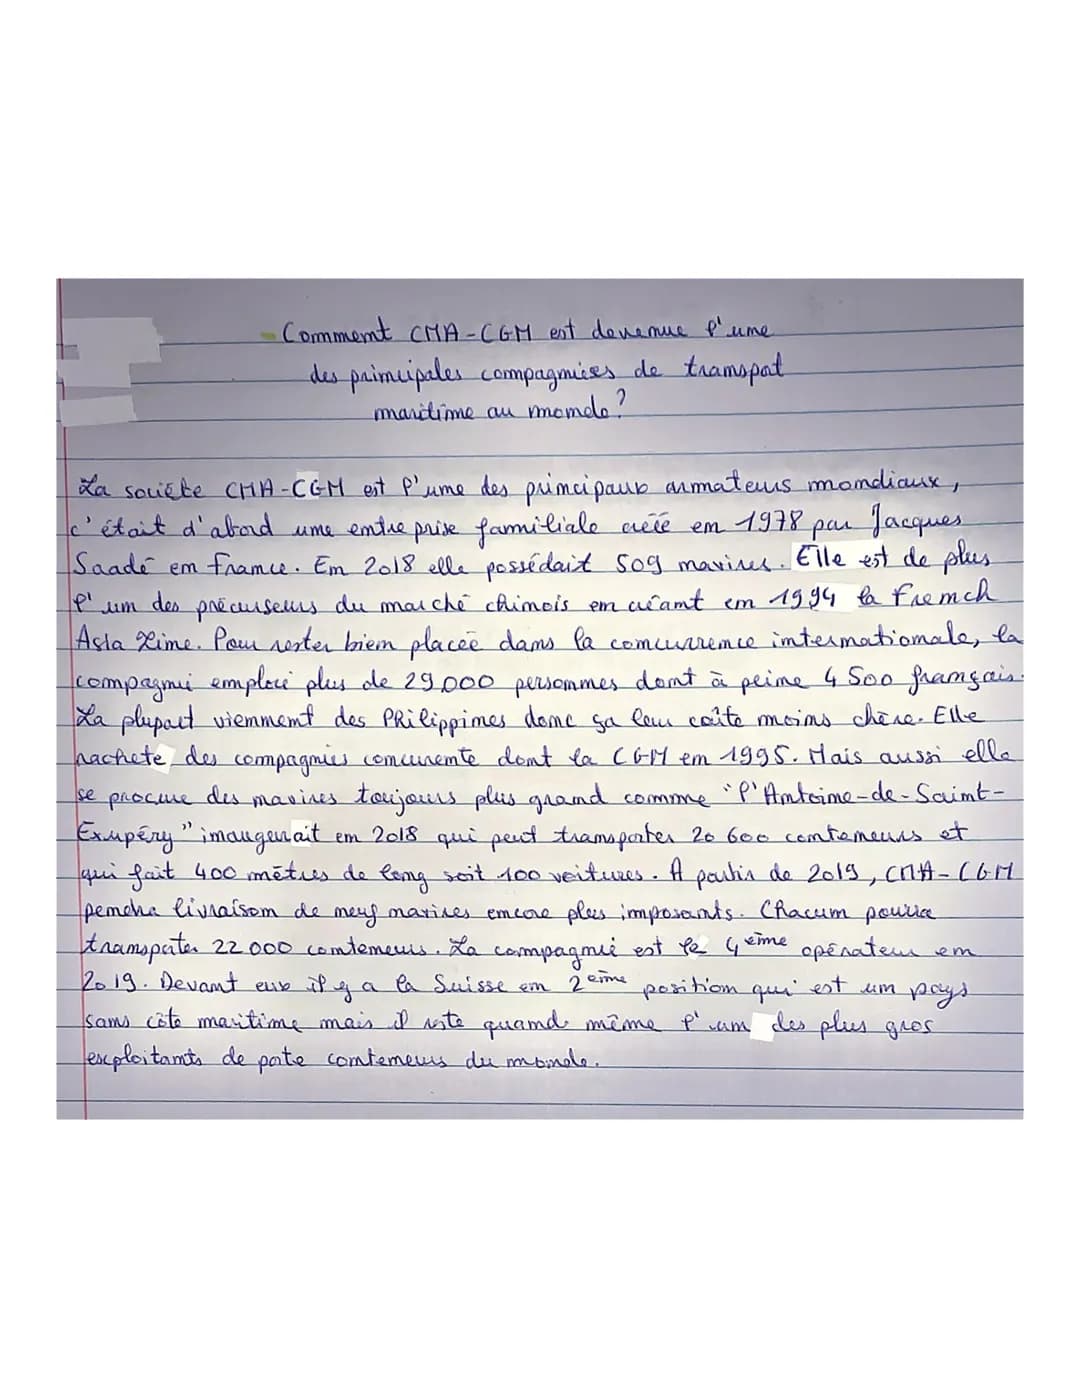 - Comment CMA-CGM est devenue l'une
des principales compagnies de transpot
maritime au monde ?
La société CMA-CGM est l'une des principaux armateurs mondiaux,
c'était d'abord une entreprise familiale créée en 1978 par Jacques
Saadé en France. En 2018 elle possédait 509 navires. Elle est de plus
l'un des précurseurs du marché chinois en créant en 1994 la French
Asia Line. Pour rester bien placée dans la concurrence internationale, la
compagnie emploie plus de 29.000 personnes dont à peine 4 500 français.
La plupart viennent des Philippines donc ça leur coûte moins chère. Elle
rachète des compagnies concurente dont la CGM en 1995. Mais aussi elle
se procure des navires toujours plus grand comme "l'Antoine-de-Saint-
Exupéry" inaugurait en 2018 qui peut transporter 20 600 conteneurs et
qui fait 400 mètres de long soit 100 voitures. A partir de 2019, CMA-CGM
pendra livraison de neuf navires encore plus imposants. Chacun pourra
transpoter 22 000 conteneurs. La compagnie est le 4ème opérateur en
2019. Devant eux il y a la Suisse en 2ème position qui est un pays
sans côte maritime mais il reste quand même l'un des plus gros
exploitants de pote conteneurs du monde.